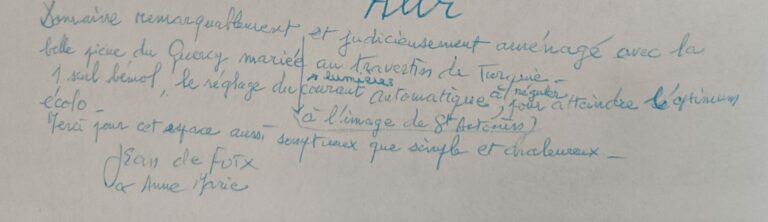 Domaine remarquablement et judicieusement aménagé avec la
belle pierre du Quercy mariée au travertin de Turquie.
1 seul bémol, le réglage du courant automatique, pour atteindre l'optimum
+ lumières
à réguler
écolo.
(à l'image de St
Merci pour cet espace aussi somptueux que simple et chaleureux.
Jean de Foix
& Anne Marie